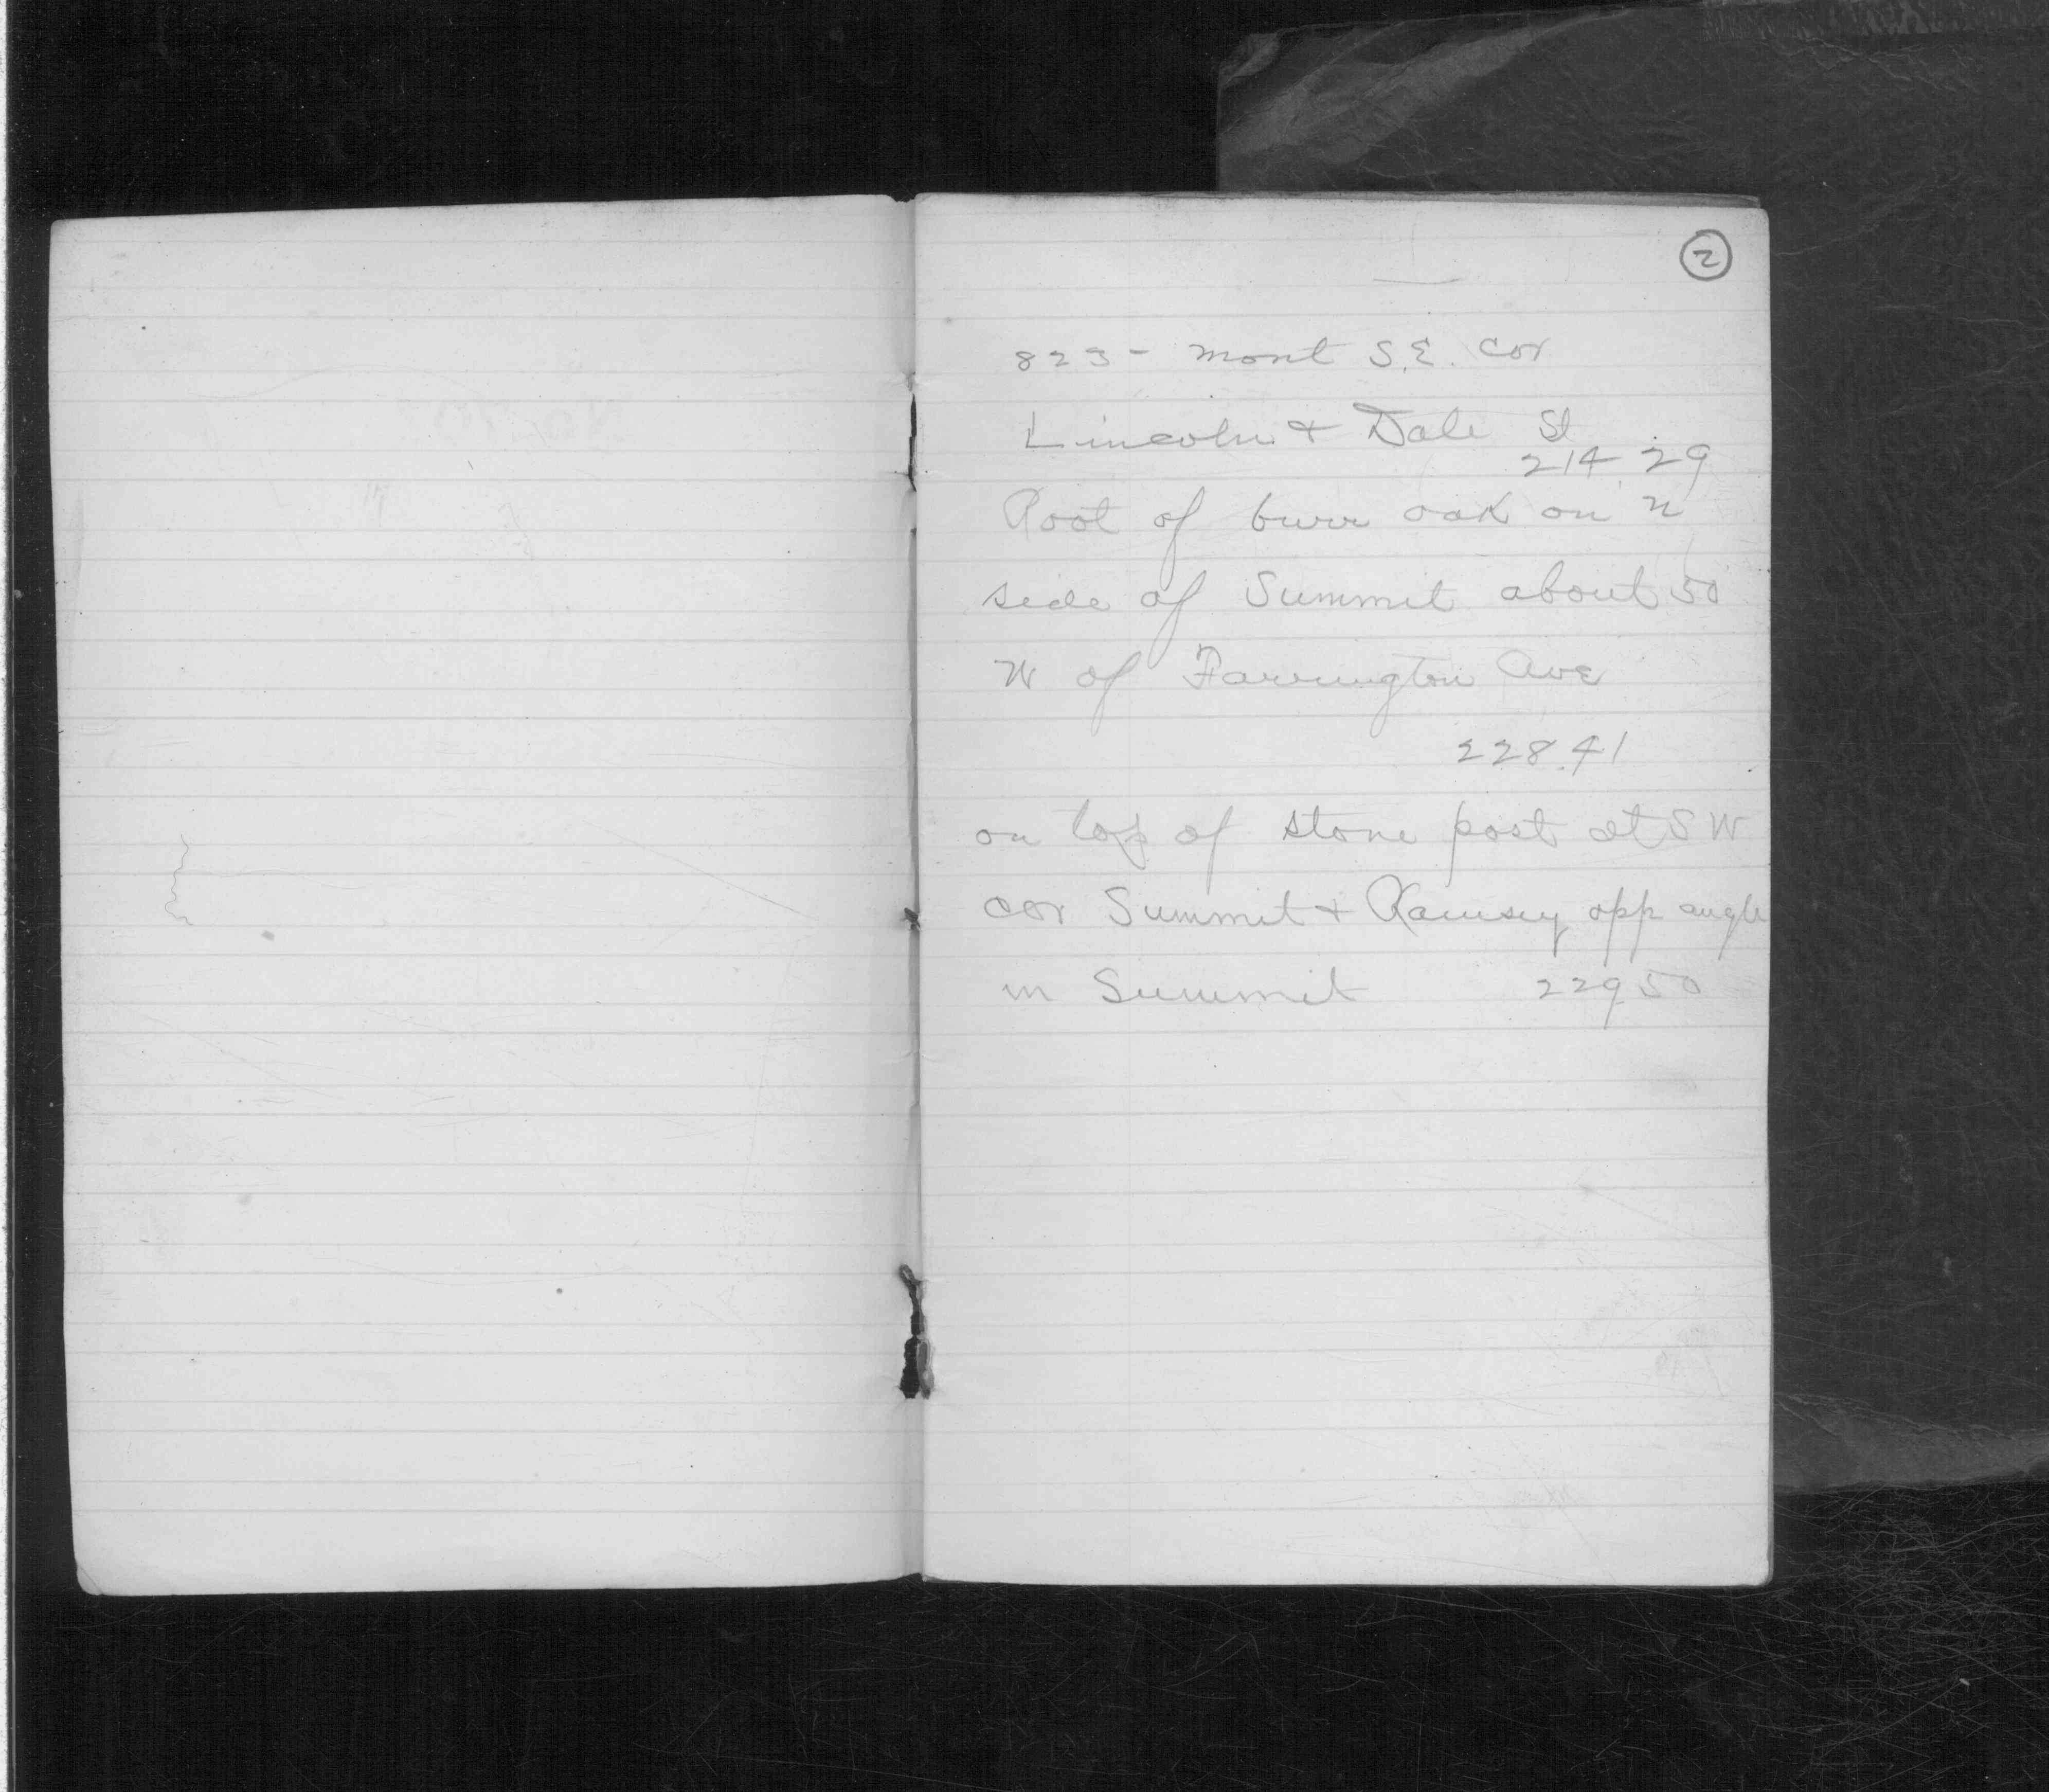 2
823 - mont S.E. cor
Lincoln + Dale St
214 29
Root of burr oak on N
side of Summit about 50
W of Farrington Ave
228.41
on top of stone post at S W
cor Summit + Ramsey opp angle
in Summit 229 50